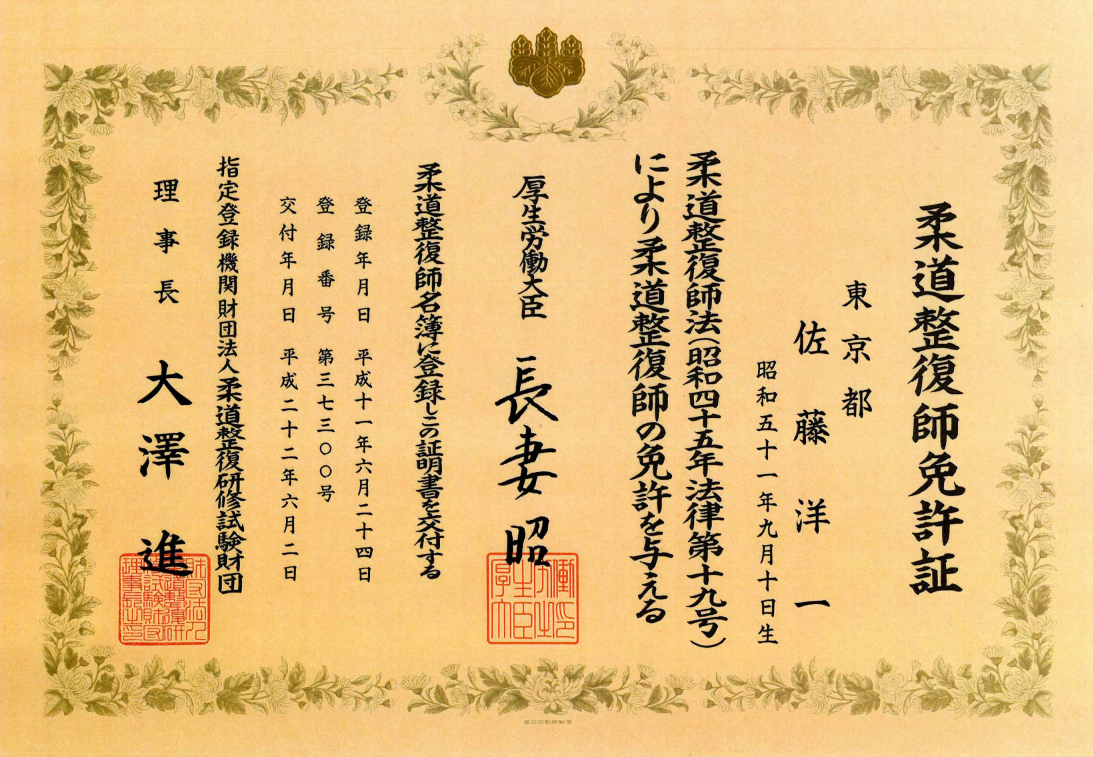 柔道整復師免許証
東京都
佐藤洋一
昭和五十一年九月十日生
柔道整復師法(昭和四十五年法律第十九号)
により柔道整復師の免許を与える
厚生労働大臣 長妻昭
柔道整復師名簿に登録しこの証明書を交付する
登録年月日 平成十一年六月二十四日
登録番号 第三七三〇〇号
交付年月日 平成二十二年六月二日
指定登録機関財団法人柔道整復研修試験財団
理事長 大澤進